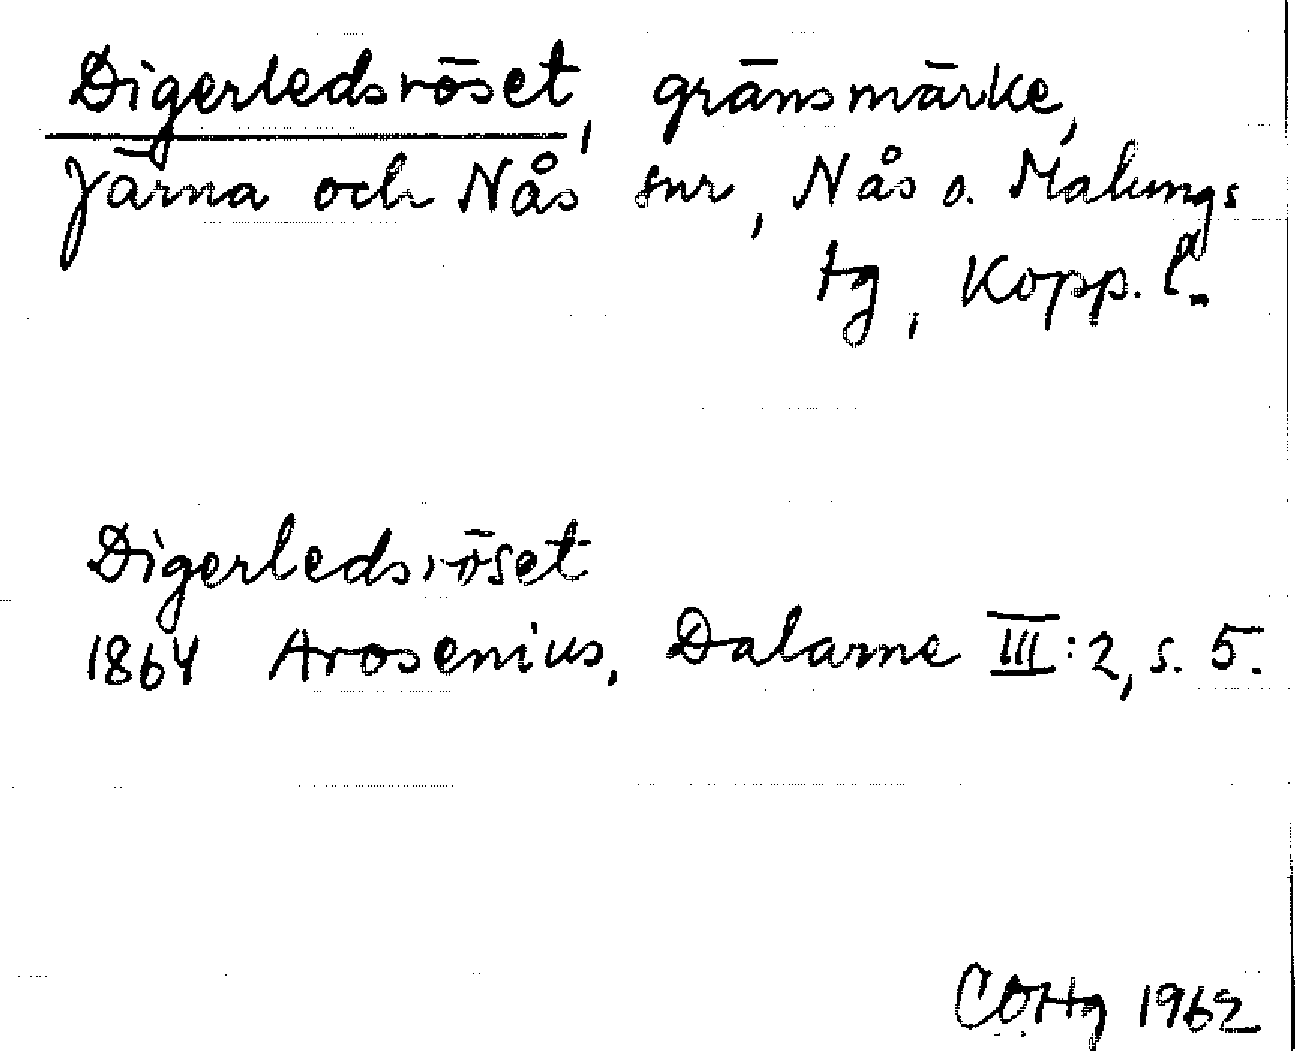 Digerledsröset, gränsmärke,
Järna och Nås snr, Nås o. Malungs
tg, Kopp. l.
Digerledsröset
1864 Arosenius, Dalarne III:2, s. 5.
COHg 1962